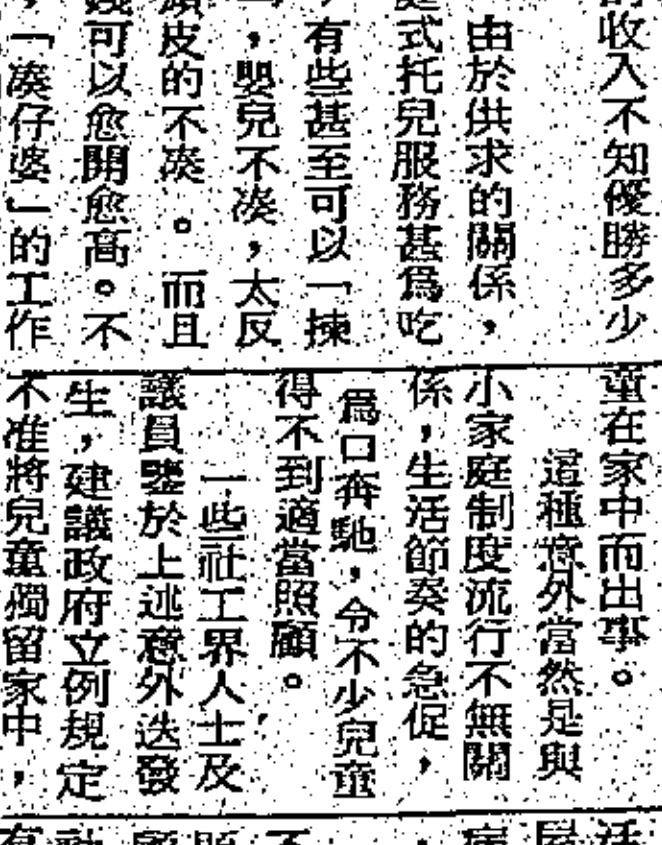 的收入不知優勝多少
由於供求的關係，
式托兒服務甚為吃
，有些甚至可以一揀
，嬰兒不湊，太反
皮的不湊。而且
可以愈開愈高。不
，「湊仔婆」的工作
童在家中而出事。
這種意外當然是與
小家庭制度流行不無關
係，生活節奏的急促，
為口奔馳，令不少兒童
得不到適當照顧。
一些社工界人士及
議員鑒於上述意外迭發
生，建議政府立例規定
不准將兒童獨留家中，